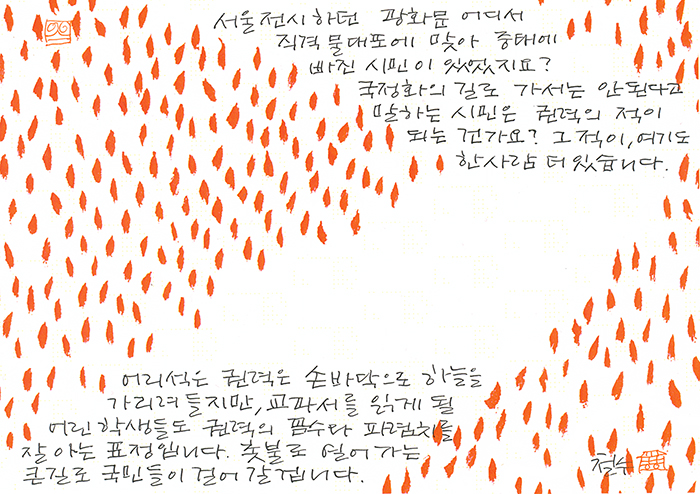 서울전시하던 광화문 어디서
직격물대포에 맞아 중태에
빠진 시민이 있었지요?
국정화의 길로 가서는 안된다고
말하는 시민은 권력의 적이
되는 건가요? 그 적이, 여기도
한사람 더 있습니다.
어리석은 권력은 손바닥으로 하늘을
가리려 들지만, 교과서를 읽게 될
어린 학생들도 권력의 꼼수와 파렴치를
잘 아는 표정입니다. 촛불로 열어 가는
큰길로 국민들이 걸어 갈겁니다.
철수